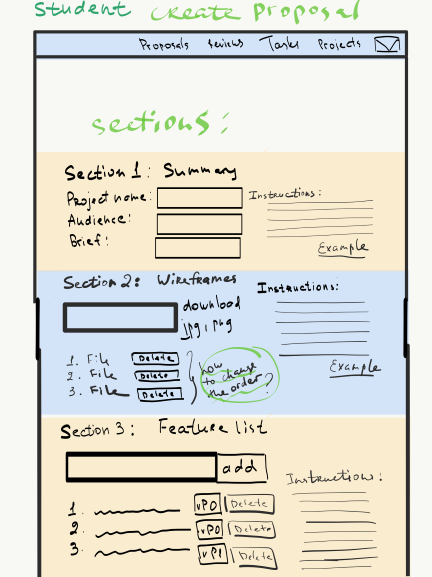 Student create Proposal
Proposals reviews Tasks Projects
sections:
Section 1: Summary
Project name:
Instructions:
Audience:
Brief:
Example
Section 2: Wireframes
Instructions:
download
jpg, png
1. File Delete
2. File Delete
3. File Delete
how to change the order?
Example
Section 3: Feature list
add
Instructions:
1. vP0 Delete
2. vP0 Delete
3. vP1 Delete